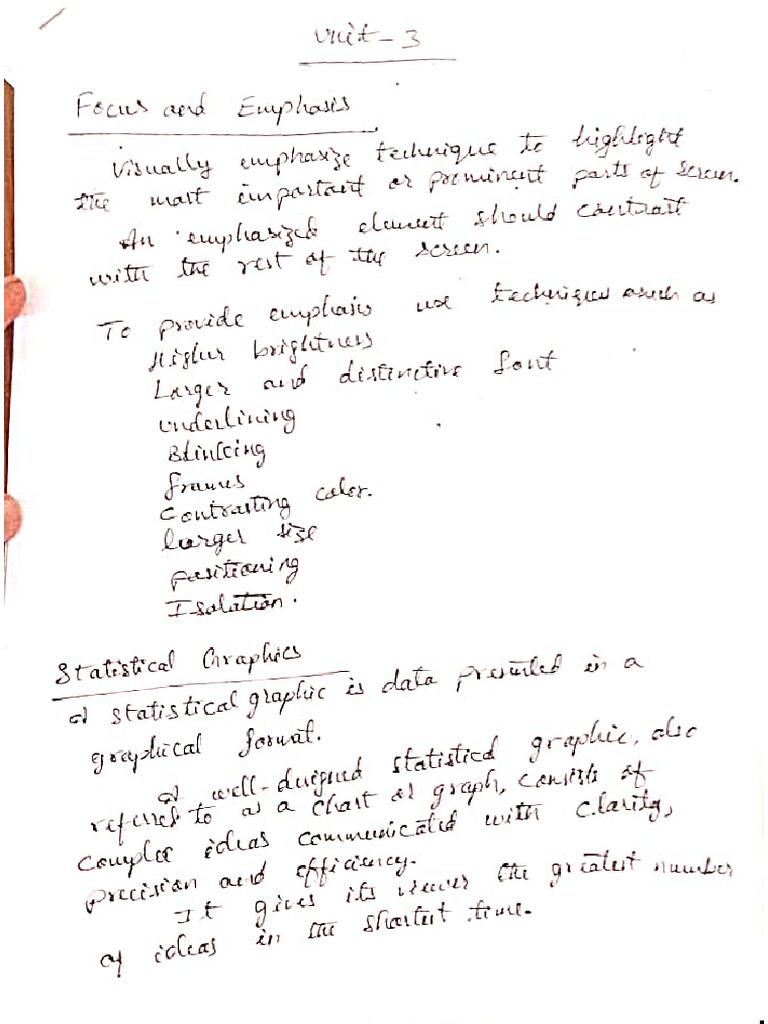 Unit - 3
Focus and Emphasis
Visually emphasize technique to highlight
the most important or prominent parts of screen.
An emphasized element should contrast
with the rest of the screen.
To provide emphasis use techniques such as
Higher brightness
Larger and distinctive font
underlining
Blinking
frames
Contrasting color.
larger size
positioning
Isolation.
Statistical Graphics
A statistical graphic is data presented in a
graphical format.
A well-designed statistical graphic, also
referred to as a chart or graph, consists of
complex ideas communicated with clarity,
precision and efficiency.
It gives its viewer the greatest number
of ideas in the shortest time.